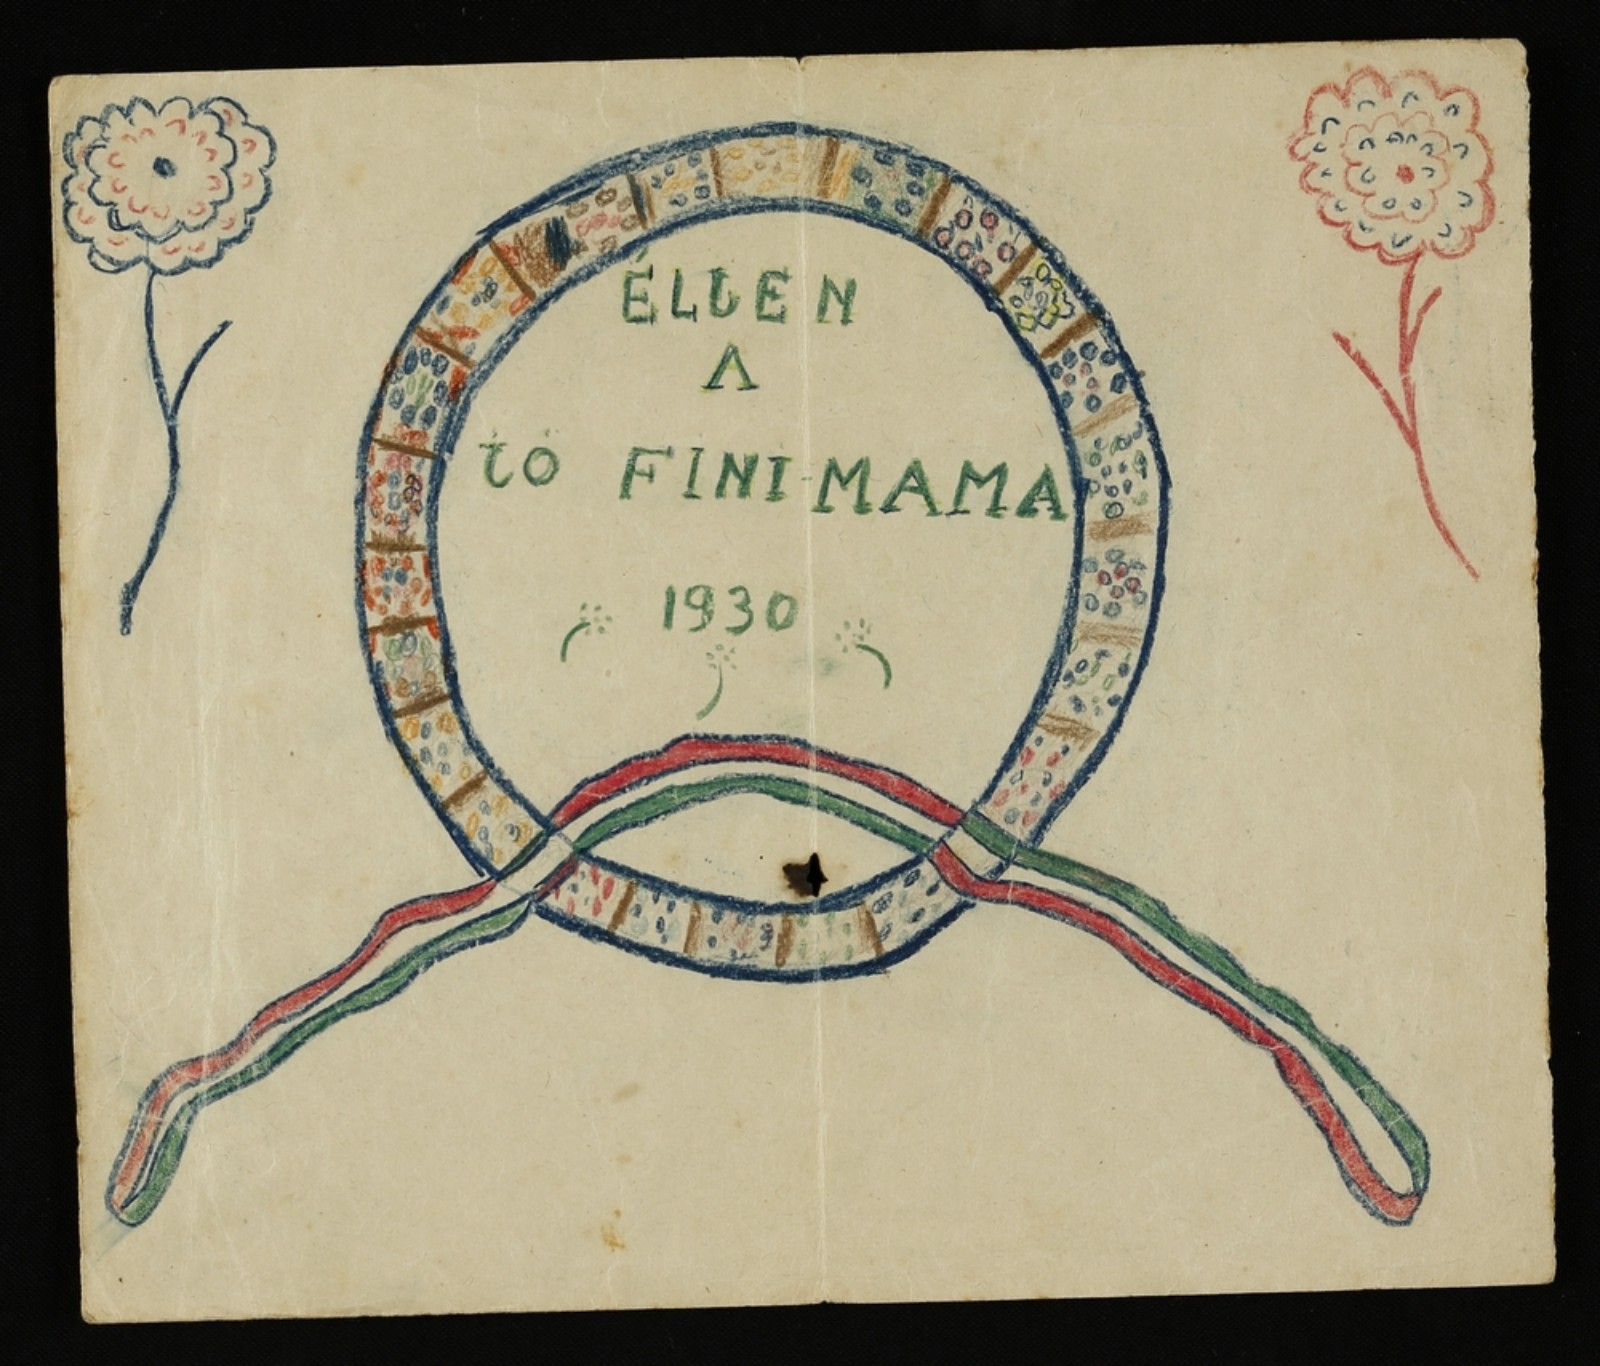 ÉLJEN
A
JÓ FINI-MAMA
1930